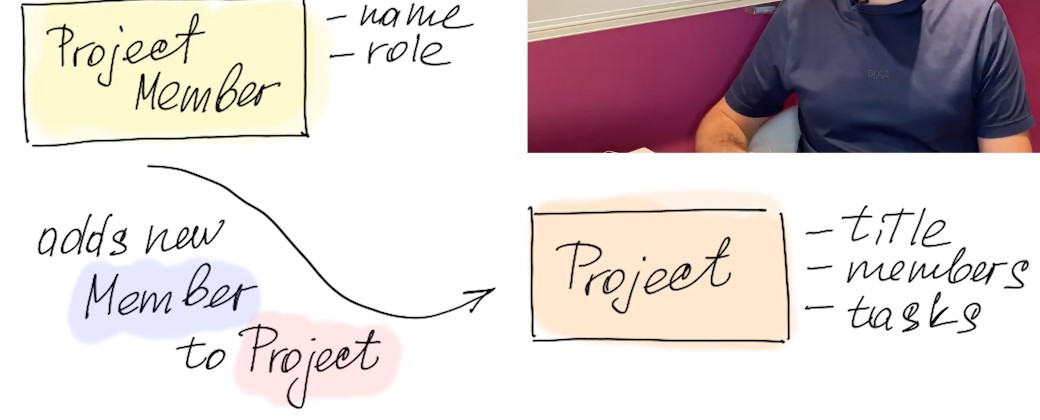 Project
Member
- name
- role
adds new
Member
to Project
Project
- title
- members
- tasks